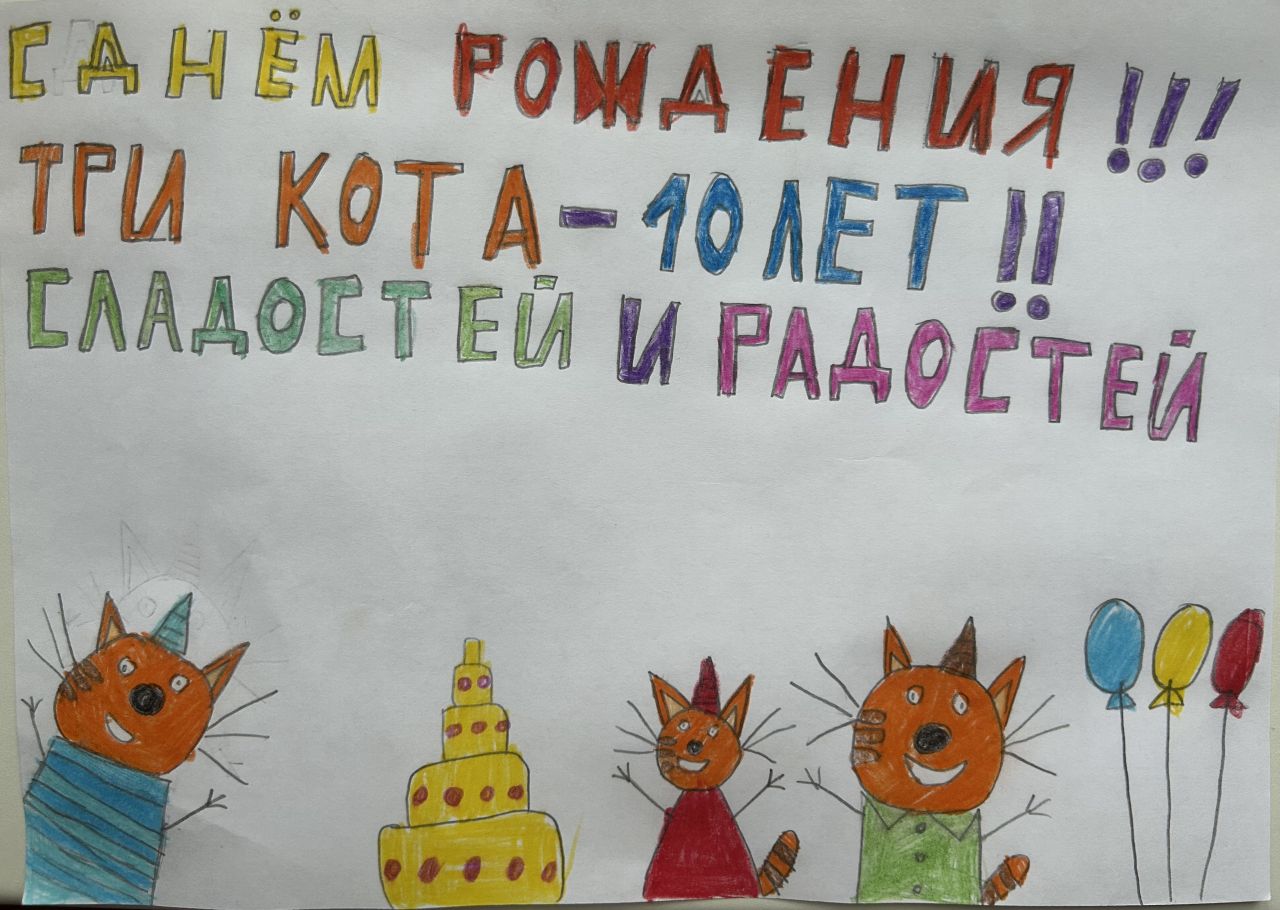 С ДНЁМ РОЖДЕНИЯ!!!
ТРИ КОТА-10 ЛЕТ!!
СЛАДОСТЕЙ И РАДОСТЕЙ